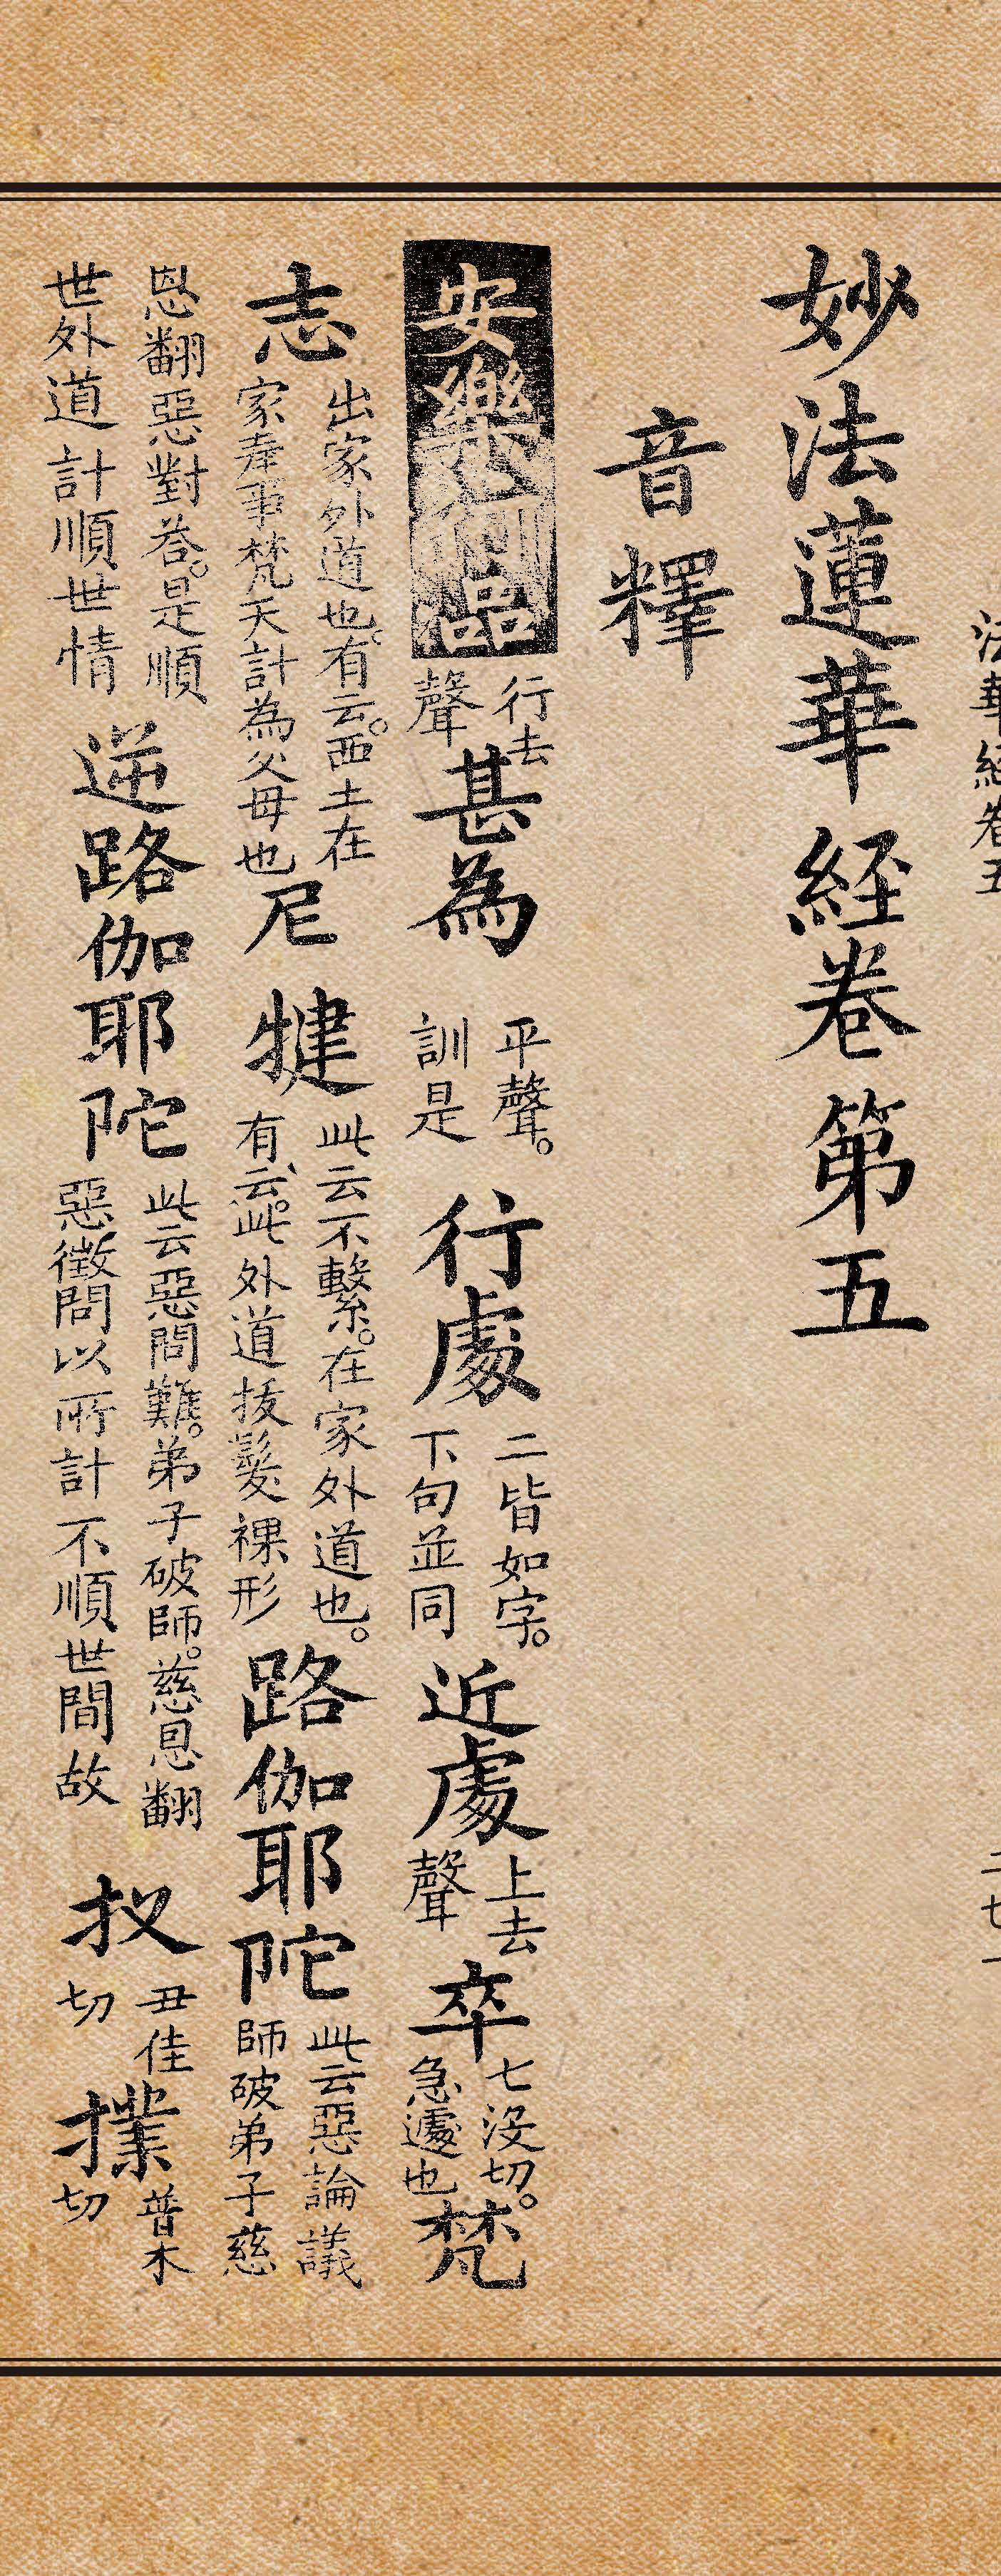 法華經卷五
妙法蓮華経卷第五
音釋
安樂行品行去聲甚為平聲。訓是行處二皆如字。下句並同近處上去聲卒七沒切。急遽也梵
志出家外道也。有云。西土在家奉事梵天計為父母也尼犍此云不繫。在家外道也。有云。此外道拔髮裸形路伽耶陀此云惡論議師破弟子慈
恩翻惡對荅。是順世外道計順世情逆路伽耶陀此云惡問難。弟子破師。慈恩翻惡徵問以所計不順世間故扠丑佳切撲普木切